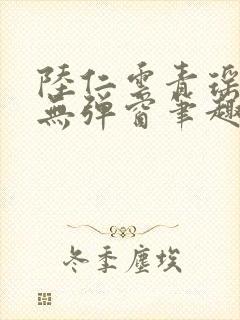 陸仁雲青瑤
無彈窗筆趣
冬季塵埃